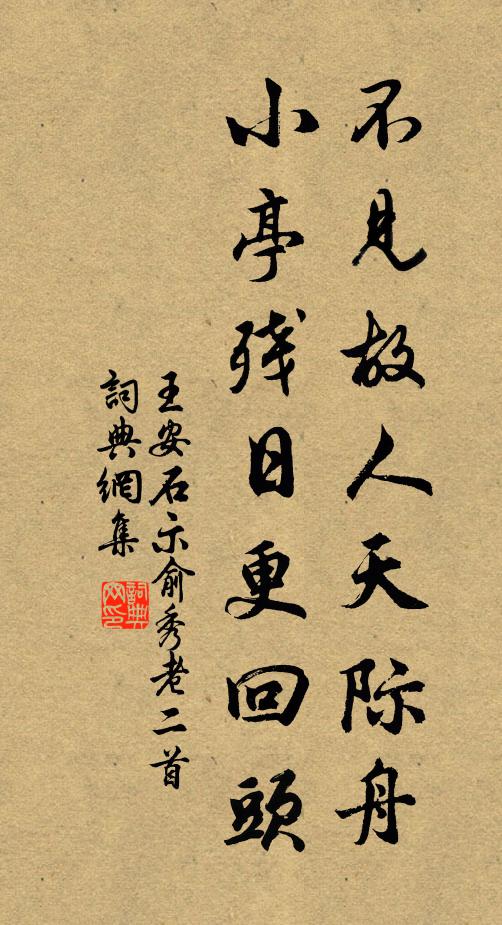 不見故人天际舟
小亭残日更回頭
王安石示俞秀老二首
詞典網集
詞典网印